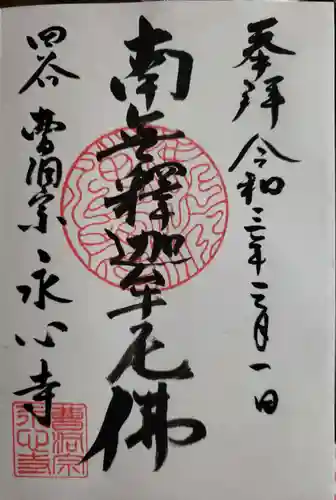 奉拝 令和三年三月一日
南無釋迦牟尼佛
四谷 曹洞宗 永心寺
曹洞宗
永心寺